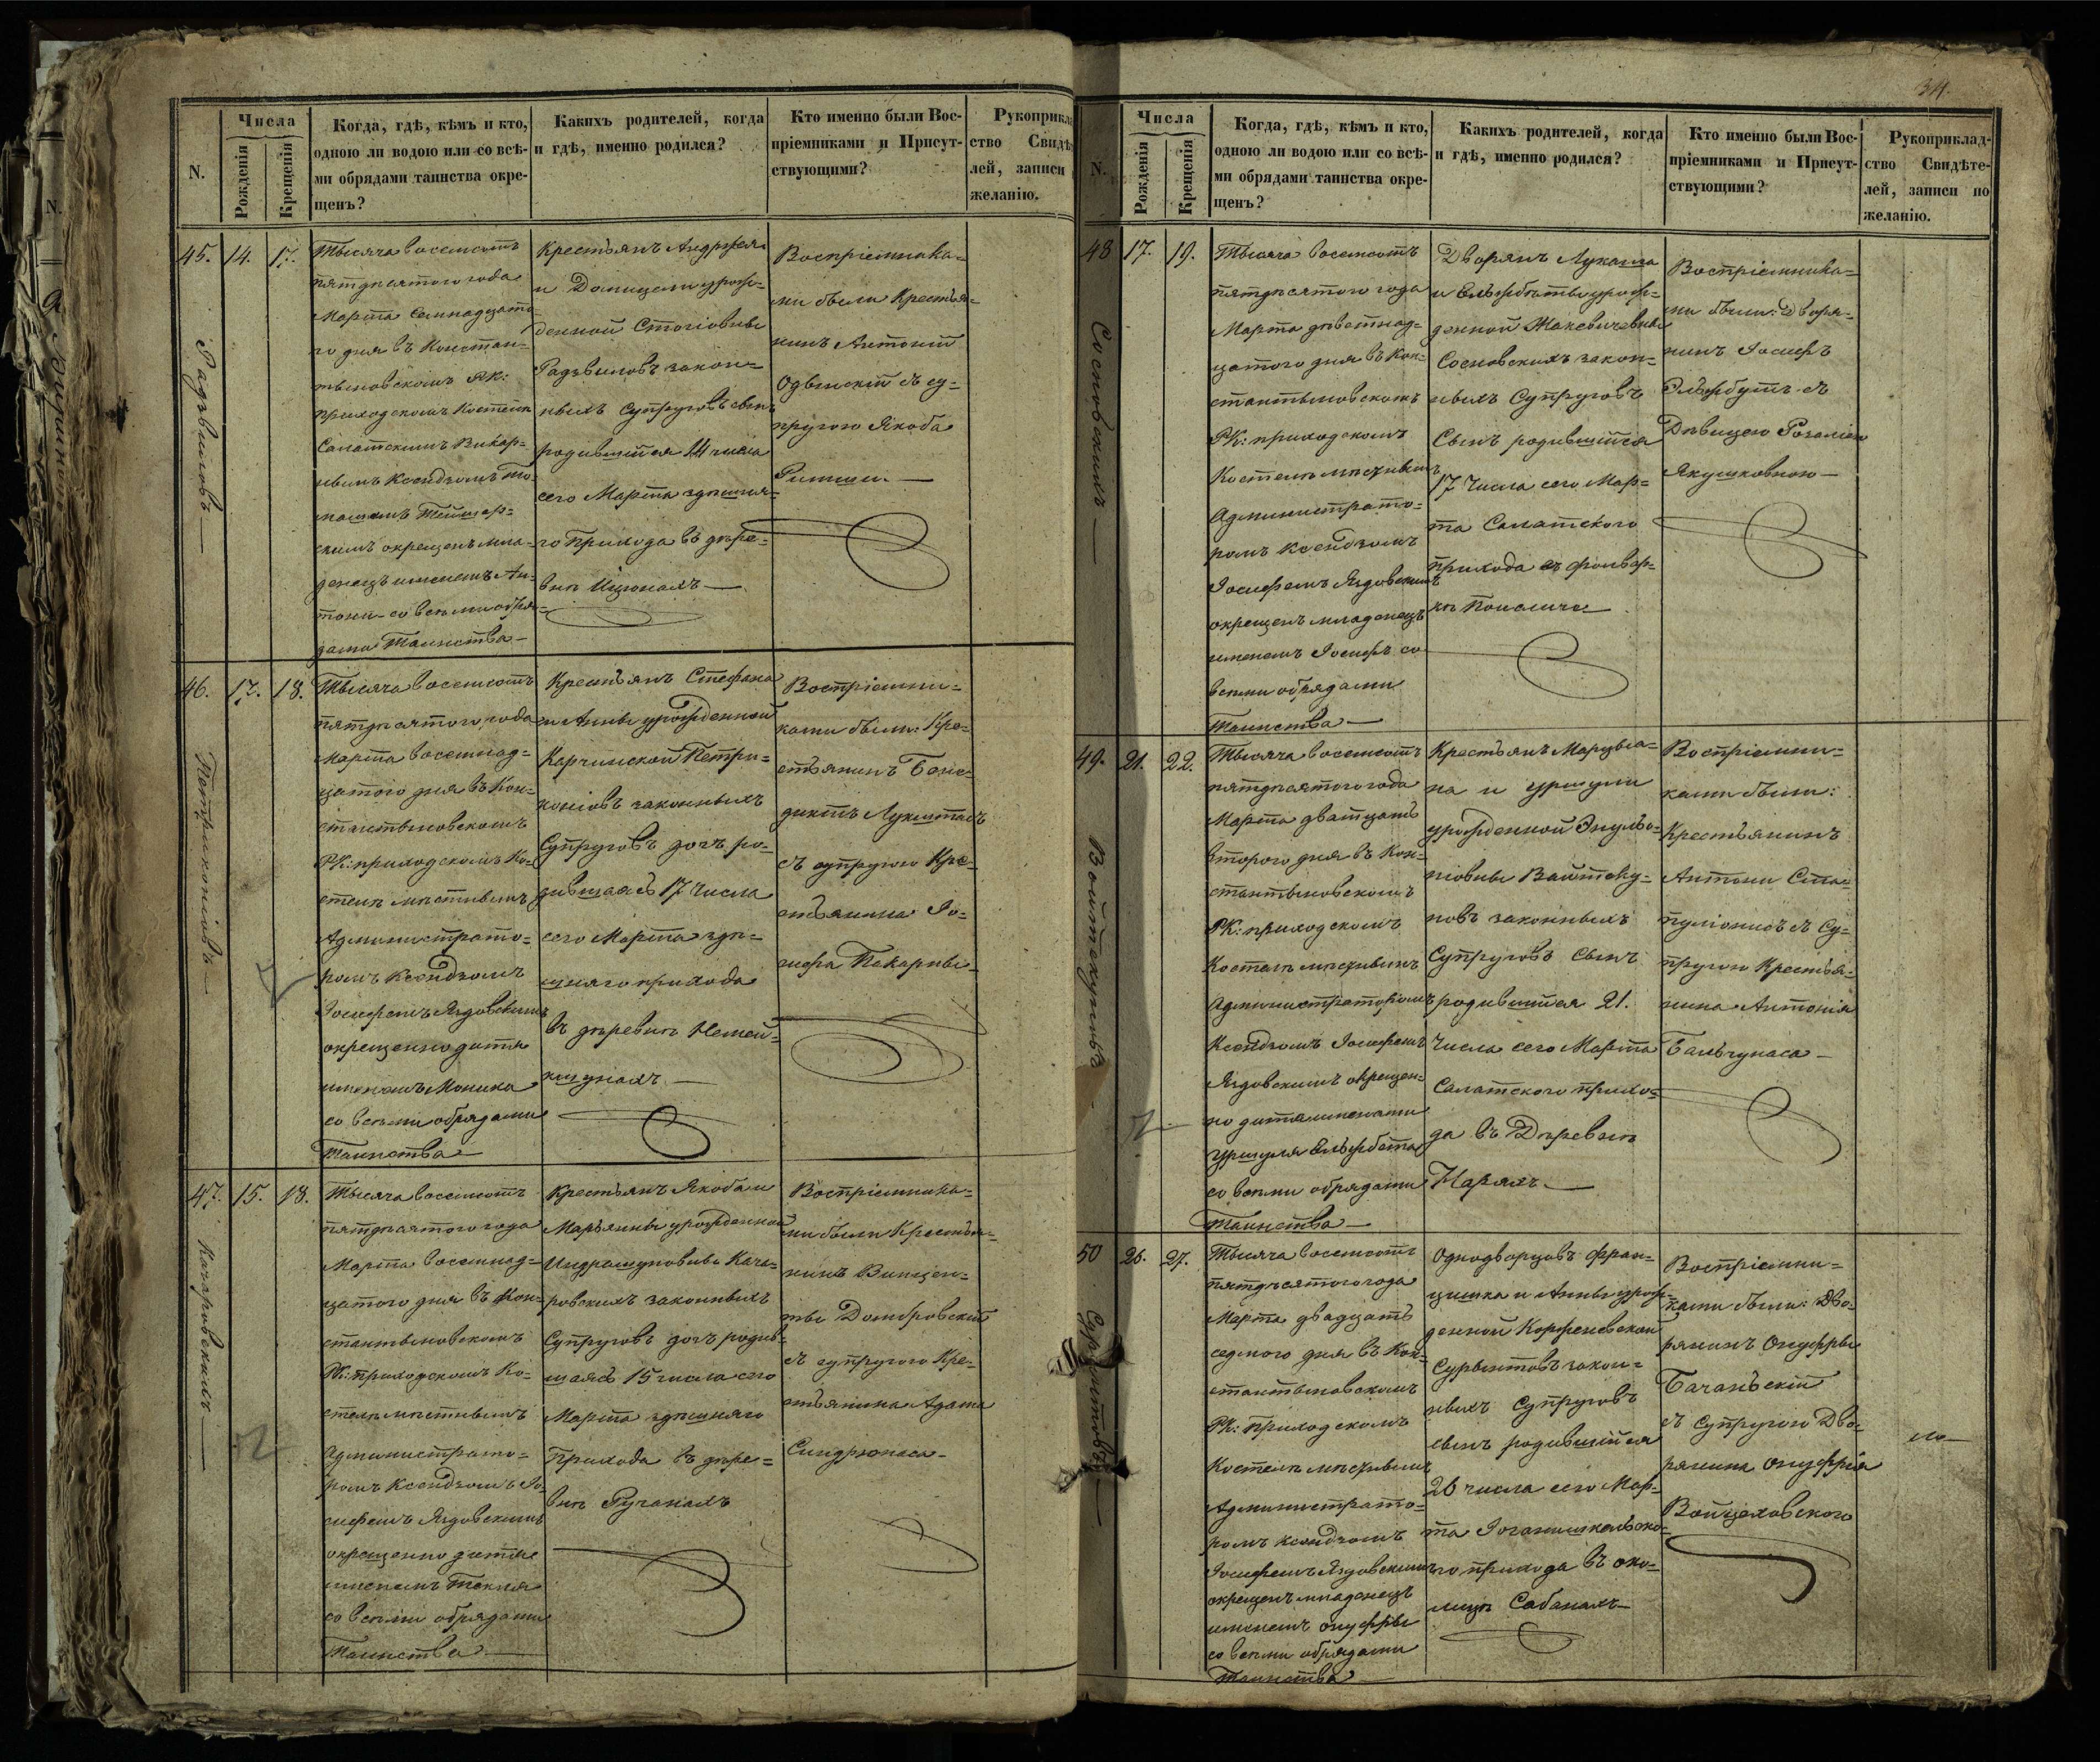 N.
Числа
Рожденія
Крещенія
Когда, гдѣ, кѣмъ и кто,
одною ли водою или со всѣ-
ми обрядами таинства окре-
щенъ?
Какихъ родителей, когда
и гдѣ, именно родился?
Кто именно были Вос-
пріемниками и Присут-
ствующими?
Рукоприкла
ство Свидѣ
лей, записи
желанію.
45. 14. 17.
Тысяча восемсотъ
пятдесятого года
Марта семнадцато-
го дня въ Констан-
тыновскомъ РК:
приходскомъ Костелѣ
Салатскимъ Викар-
нымъ Ксендзомъ То-
машемъ
окрещенъ мла-
денецъ именемъ Ан-
тони со всѣми обря-
дами Таинства
Крестьянъ Андржея
и Домицели урож-
денной
Радзвиловъ закон-
ныхъ Супруговъ сынъ
родившійся 14 числа
сего Марта здѣшня-
го Прихода въ дере-
внѣ
Воспріемника-
ми были Крестья-
нинъ Антоній
съ су-
пругою Якоба
46. 17. 18.
Тысяча восемсотъ
пятдесятого года
Марта восемнад-
цатого дня въ Кон-
стантыновскомъ
РК: приходскомъ Ко-
стелѣ мѣстнымъ
Администрато-
ромъ Ксендзомъ
Іосифемъ Яздовскимъ
окрещенно дитя
именемъ Моника
со всѣми обрядами
Таинства
Крестьянъ Стефана
и Анны урожденной
Карчинской Петри-
коніовъ законныхъ
Супруговъ дочъ ро-
дившаясь 17 числа
сего Марта здѣ-
шняго прихода
въ деревнѣ
Воспріемни-
ками были: Кре-
стьянинъ Бене-
диктъ
съ супругою Кре-
стьянина Іо-
зифа
47. 15. 18.
Тысяча восемсотъ
пятдесятого года
Марта восемнад-
цатого дня въ Кон-
стантыновскомъ
РК: приходскомъ Ко-
стелѣ мѣстнымъ
Администрато-
ромъ Ксендзомъ Іо-
сифемъ Яздовскимъ
окрещенно дитя
именемъ Текля
со всѣми обрядами
Таинства
Крестьянъ Якоба и
Марьянны урожденной
Индрашуновны Кача-
ровскихъ законныхъ
Супруговъ дочъ родив-
шаясь 15 числа сего
Марта здѣшняго
Прихода въ дере-
внѣ Ручанахъ
Воспріемника-
ми были Крестья-
нинъ Винцен-
ты Домбровскій
съ супругою Кре-
стьянина Адама
Синдрюнаса
Радзвиловъ
Петриконіовъ
Качаровскихъ
34.
N.
Числа
Рожденія
Крещенія
Когда, гдѣ, кѣмъ и кто,
одною ли водою или со всѣ-
ми обрядами таинства окре-
щенъ?
Какихъ родителей, когда
и гдѣ, именно родился?
Кто именно были Вос-
пріемниками и Присут-
ствующими?
Рукоприклад-
ство Свидѣте-
лей, записи по
желанію.
48 17. 19.
Тысяча восемсотъ
пятдесятого года
Марта девятнад-
цатого дня въ Кон-
стантыновскомъ
РК: приходскомъ
Костелѣ мѣстнымъ
Администрато-
ромъ Ксендзомъ
Іосифемъ Яздовскимъ
окрещенъ младенецъ
именемъ Іосифъ со
всѣми обрядами
Таинства
Дворянъ Лукаша
и Эльжбеты урож-
денной Жакевичевны
Сосновскихъ закон-
ныхъ Супруговъ
Сынъ родившійся
17 Числа сего Мар-
та Салатского
прихода въ фольвар-
кѣ
Воспріемника-
ми были: Дворя-
нинъ Іосифъ
Эльжбутъ съ
Дѣвицею Розаліею
Якушковною
49. 21. 22.
Тысяча восемсотъ
пятдесятого года
Марта двадцать
второго дня въ Кон-
стантыновскомъ
РК: приходскомъ
Костелѣ мѣстнымъ
Администраторомъ
Ксендзомъ Іосифемъ
Яздовскимъ окрещен-
но дитя именами
Уршуля Эльжбета
со всѣми обрядами
Таинства
Крестьянъ Марцыа-
на и Уршули
урожденной
Войтеку-
новъ законныхъ
Супруговъ Сынъ
родившійся 21.
Числа сего Марта
Салатского прихо-
да въ Деревнѣ
Наряхъ
Воспріемни-
ками были:
Крестьянинъ
Антони
съ Су-
пругою Крестья-
нина Антонія
Бальчунаса
50 26. 27.
Тысяча восемсотъ
пятдесятого года
Марта двадцать
седмого дня въ Кон-
стантыновскомъ
РК: приходскомъ
Костелѣ мѣстнымъ
Администрато-
ромъ ксендзомъ
Іосифемъ Яздовскимъ
окрещенъ младенецъ
именемъ Онуфры
со всѣми обрядами
Таинства
Однодворцовъ Фран-
цишка и Анны урож-
денной Корженевской
Сурвинтовъ закон-
ныхъ Супруговъ
сынъ родившійся
26 числа сего Мар-
та Іоганишкельско-
го прихода въ око-
лицѣ Сабанахъ
Воспріемни-
ками были: Дво-
рянинъ Онуфры
съ Супругою Дво-
рянина Онуфрія
Войцеховского
Сосновскихъ
Войтекуновъ